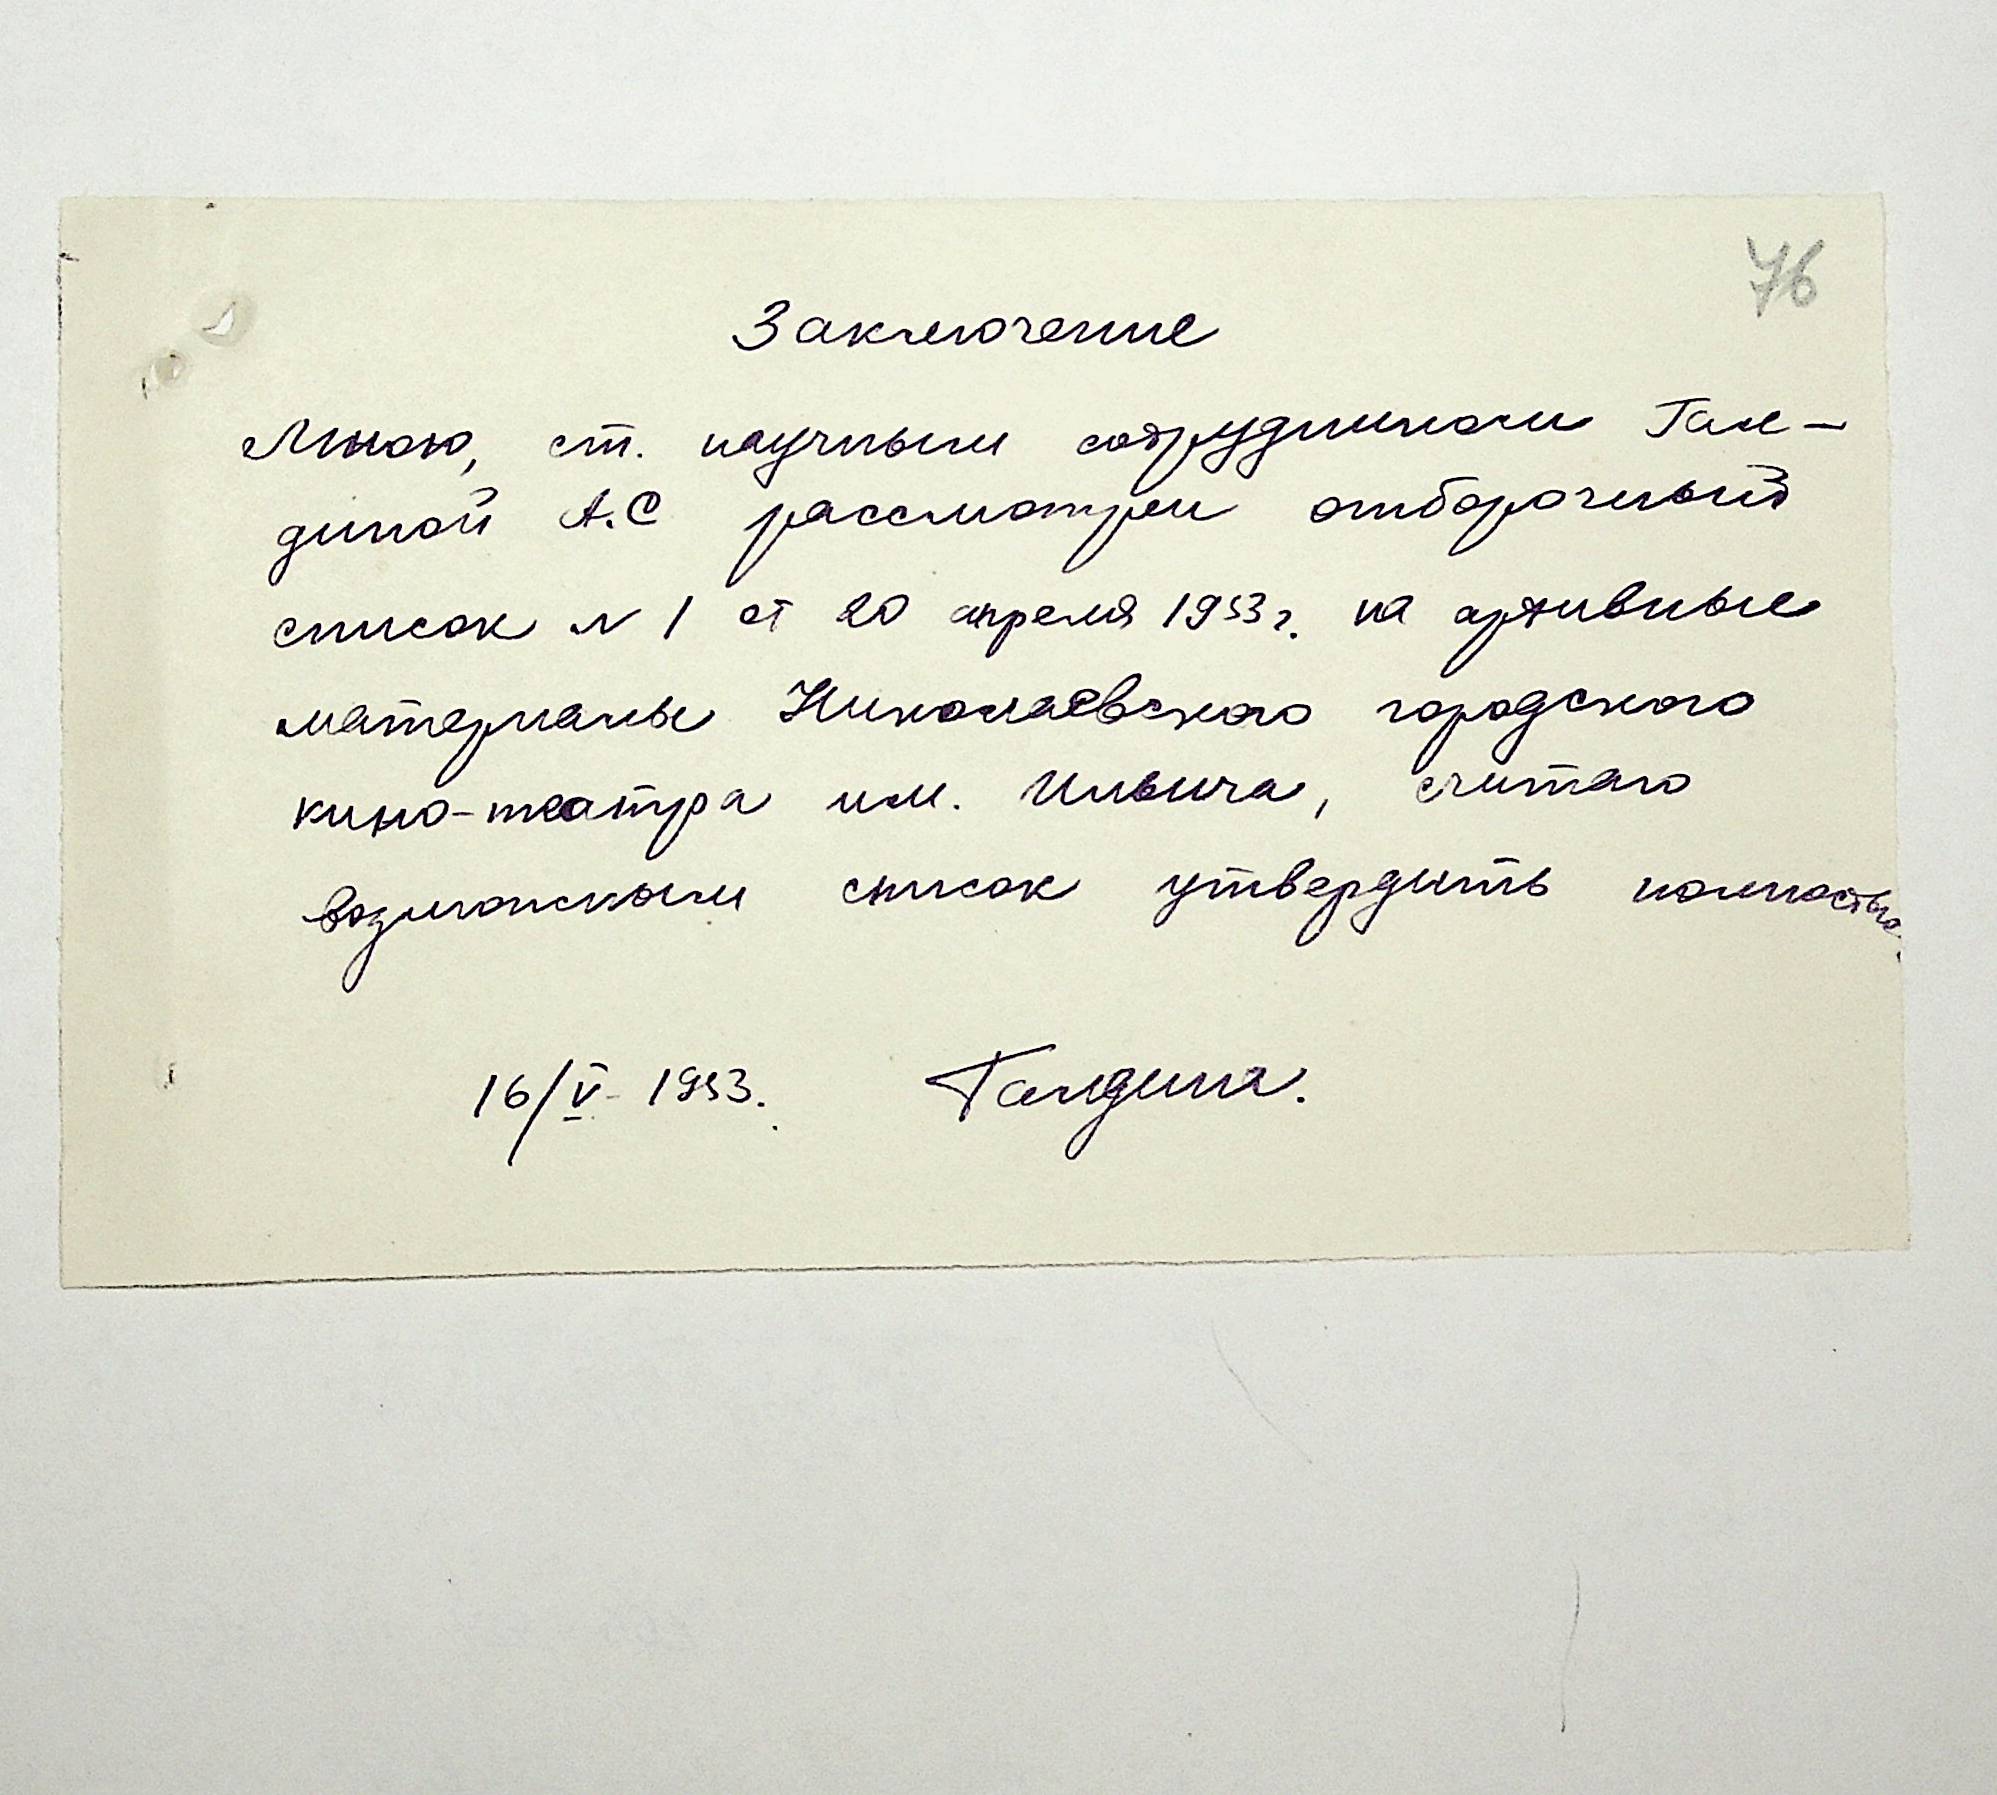 76
Заключение
Мною, ст. научным сотрудником Гал-
диной А.С рассмотрен отборочный
список N 1 от 20 апреля 1953 г. на архивные
материалы Николаевского городского
кино-театра им. Ильича, считаю
возможным список утвердить полностью.
16/V- 1953. Галдина.